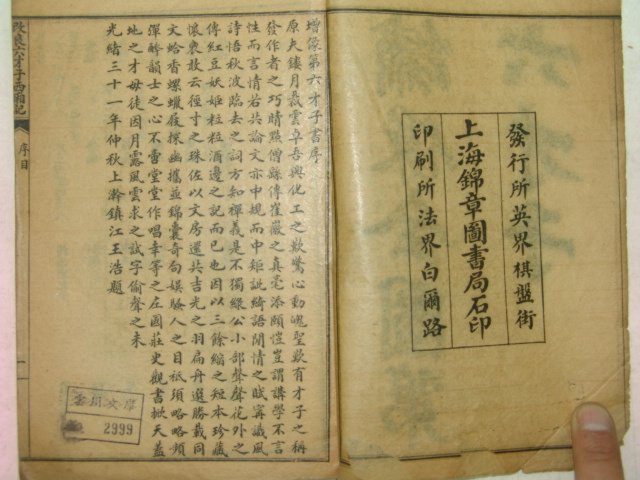 發行所英界棋盤街
上海錦章圖書局石印
印刷所法界白爾路
增像第六才子書序
原夫鏤月裁雲卓吾興化工之歎驚心動魄聖歎有才子之稱
發作者之巧睛點僧繇傳崔巖之真毫添頤愷豈謂講學不言
性而言情若共論文亦中規而中矩訛綺語閒情之賦寗譏風
詩悟秋波臨去之詞方知禪義是不獨綠公小部聲聲花外之
傳紅豆妖姬粒粒酒邊之記而已也因以三餘縮之短本珍藏
懷裹敢云徑寸之珠佐以文房還共吉光之羽扁舟選勝載同
文蛤香螺蠟屐探幽攜並錦囊奇句娛騷人之目祗須略略頻
彈醉韻士之心不啻堂堂作唱幸等之左國莊史觀書掀天蓋
地之才毋徒因月露風雲求之試字偷聲之末
光緒三十一年仲秋上澣鎮江王浩題
改良六才子西廂記
序目
一
2999